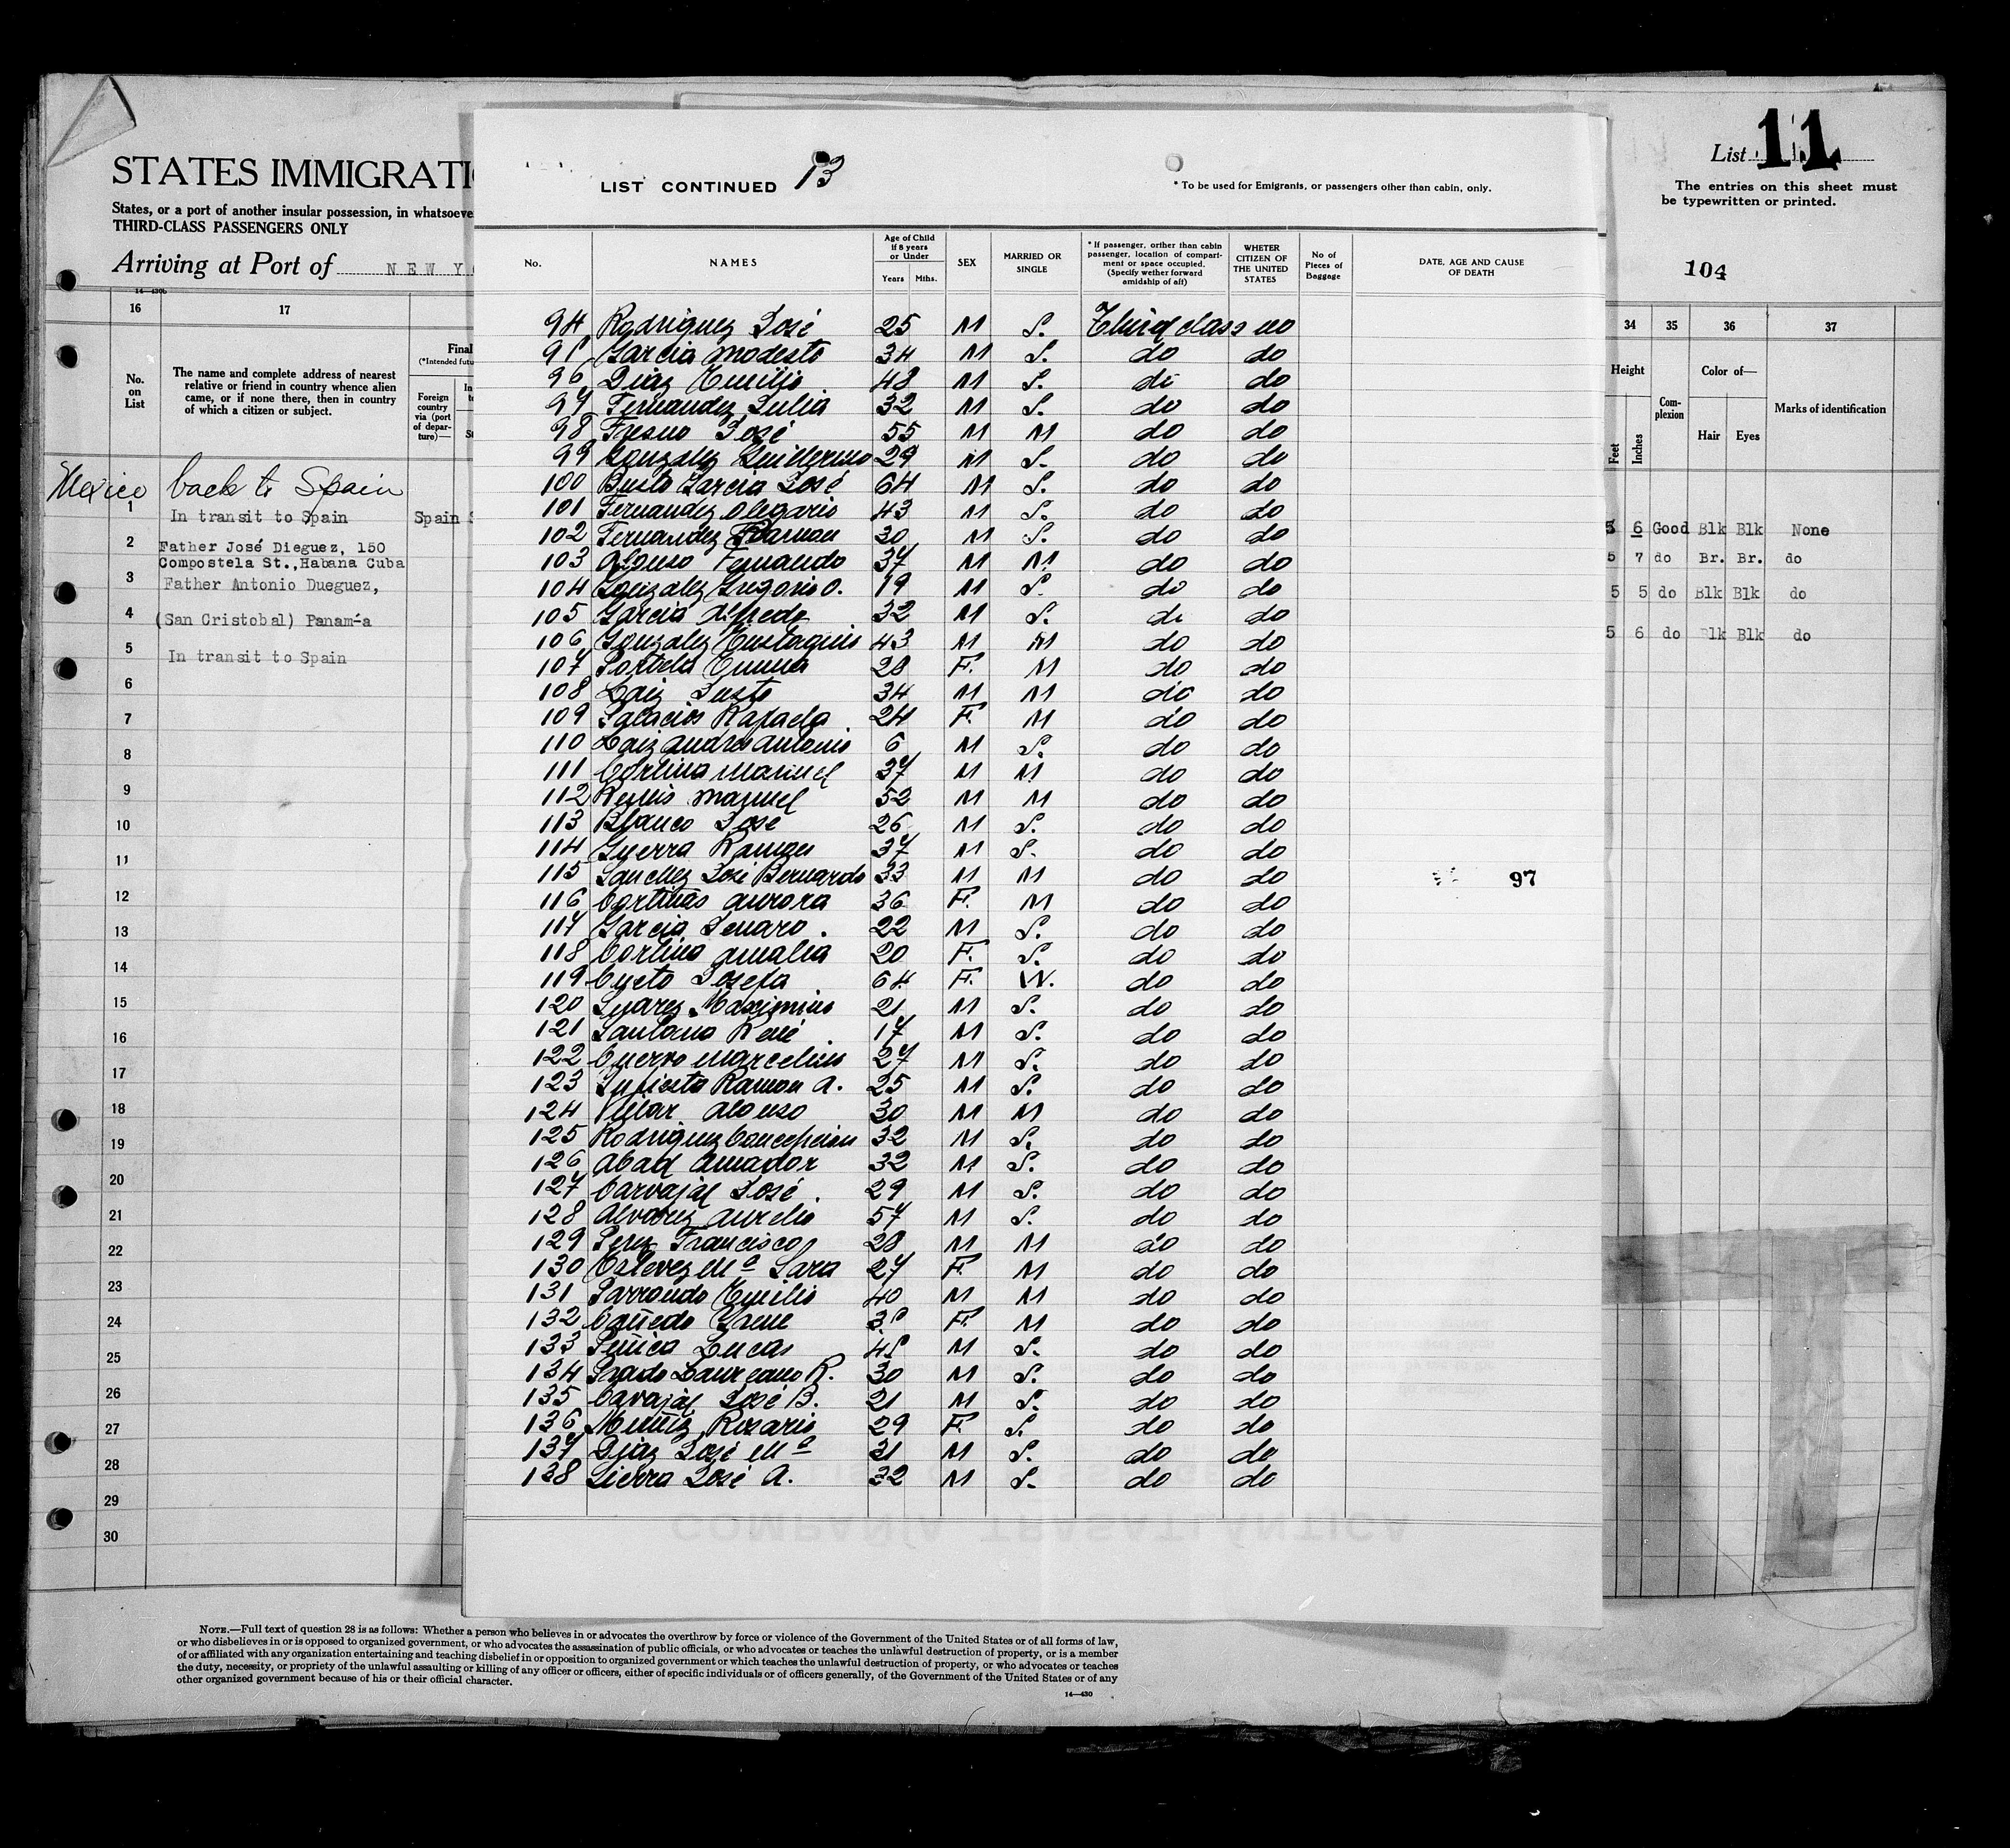 STATES IMMIGRATI
States, or a port of another insular possession, in whatsoeve
THIRD-CLASS PASSENGERS ONLY
Arriving at Port of NEW Y
14—430b
16 17
No. on List
The name and complete address of nearest relative or friend in country whence alien came, or if none there, then in country of which a citizen or subject.
Final
(*Intended futu
Foreign country via (port of depar- ture)—
Mexico back to Spain
1 In transit to Spain Spain
2 Father José Dieguez, 150
Compostela St., Habana Cuba
3 Father Antonio Dueguez,
4 (San Cristobal) Panam-a
5 In transit to Spain
6
7
8
9
10
11
12
13
14
15
16
17
18
19
20
21
22
23
24
25
26
27
28
29
30
LIST CONTINUED 13
* To be used for Emigrants, or passengers other than cabin, only.
No. NAMES
Age of Child if 8 years or Under
Years Mths.
SEX
MARRIED OR SINGLE
* If passenger, orther than cabin passenger, location of compart- ment or space occupied. (Specify wether forward amidship of aft)
WHETER CITIZEN OF THE UNITED STATES
No of Pieces of Baggage
DATE, AGE AND CAUSE OF DEATH
94 Rodriguez José 25 M S. Third class no
95 Garcia Modesto 34 M S. do do
96 Diaz Emilio 48 M S. do do
97 Fernandez Julia 32 M S. do do
98 Fresno José 55 M M do do
99 Gonzalez Guillermo 29 M S. do do
100 Busto Garcia José 64 M S. do do
101 Fernandez Olegario 43 M S. do do
102 Fernandez Ramon 30 M S. do do
103 Alonso Fernando 37 M M do do
104 Gonzalez Gregorio O. 19 M S. do do
105 Garcia Alfredo 32 M S. do do
106 Gonzalez Eustaquio 43 M M do do
107 Portela Emma 28 F. M do do
108 Laiz Justo 34 M M do do
109 Palacios Rafaela 24 F. M do do
110 Laiz Andres Antonio 6 M S. do do
111 Cortina Manuel 37 M M do do
112 Manuel 52 M M do do
113 Blanco José 26 M S. do do
114 Guerra Ramon 37 M S. do do
115 Sanchez José Bernardo 33 M M do do
97
116 Cortinas Aurora 36 F. M do do
117 Garcia Genaro. 22 M S. do do
118 Cortina Amalia 20 F. S. do do
119 Cueto Josefa 64 F. W. do do
120 Suarez Maximino 21 M S. do do
121 Santana René 17 M S. do do
122 Cuervo Marcelino 27 M S. do do
123 Infiesta Ramon A. 25 M S. do do
124 Villar Alonso 30 M M do do
125 Rodriguez Concepcion 32 M S. do do
126 Abad Amador 32 M S. do do
127 Carvajal José. 29 M S. do do
128 Alvarez Aurelio 57 M S. do do
129 Perez Francisco 28 M M do do
130 Estevez Mª Sara 27 F. M do do
131 Parrondo Emilio 40 M M do do
132 Cañedo Irene 35 F. M do do
133 Lucas 45 M S. do do
134 Prado Laureano R. 30 M S. do do
135 Cavajal José B. 21 M S. do do
136 Muñiz Rosario 29 F. S. do do
137 Diaz José Mª 31 M S. do do
138 Sierra José A. 32 M S. do do
List 11
The entries on this sheet must be typewritten or printed.
104
34 35 36 37
Height
Feet Inches
Com- plexion
Color of—
Hair Eyes
Marks of identification
5 6 Good Blk Blk None
5 7 do Br. Br. do
5 5 do Blk Blk do
5 6 do Blk Blk do
NOTE.—Full text of question 28 is as follows: Whether a person who believes in or advocates the overthrow by force or violence of the Government of the United States or of all forms of law,
or who disbelieves in or is opposed to organized government, or who advocates the assassination of public officials, or who advocates or teaches the unlawful destruction of property, or is a member
of or affiliated with any organization entertaining and teaching disbelief in or opposition to organized government or which teaches the unlawful destruction of property, or who advocates or teaches
the duty, necessity, or propriety of the unlawful assaulting or killing of any officer or officers, either of specific individuals or of officers generally, of the Government of the United States or of any
other organized government because of his or their official character.
14—430